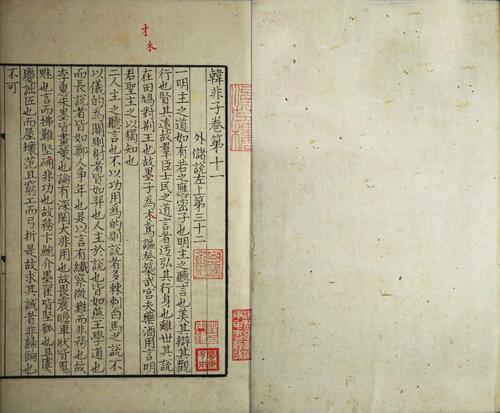 才 木
韓非子卷第十一
外儲說左上第三十二
一明主之道如有若之應宓子也明主之聽言也美其辯其觀
行也賢其遠故羣臣士民之道言者迂弘其行身也離世其說
在田鳩對荊王也故墨子為木鳶謳癸築武宮夫藥酒用言明
君聖主之以獨知也
二人主之聽言也不以功用為的則說者多棘刺白馬之說不
以儀的為關則射者皆如羿也人主於說也皆如燕王學道也
而長說者皆如鄭人爭年也是以言有纖察微難而非務也故
李惠宋墨皆畫策也論有深閎大非用也故畏震瞻車狀皆鬼
魅也言而拂難堅确非功也故務卞鮑介墨翟皆堅瓠也且虞
慶詘匠也而屋壞范且窮工而弓折是故求其誠者非歸餉也
不可